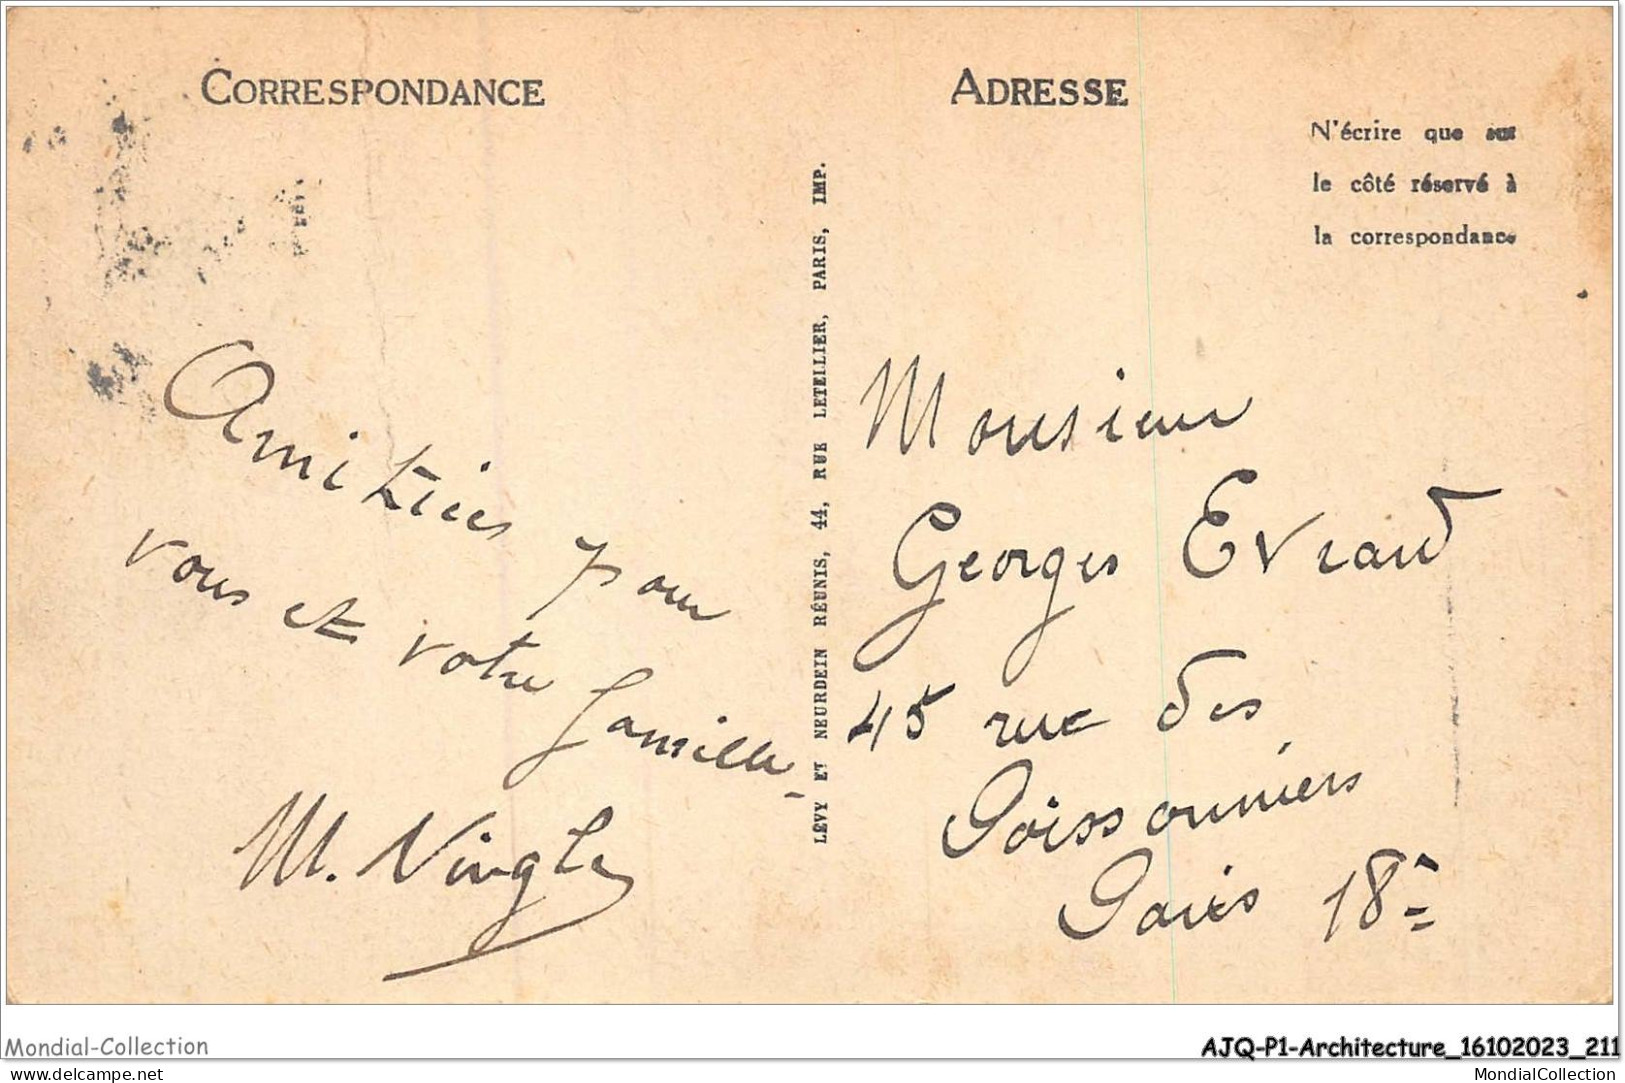 CORRESPONDANCE
Amitiés pour
vous et votre famille
M. Vingle
LÉVY ET NEURDEIN RÉUNIS, 44, RUE LETELLIER, PARIS, IMP.
ADRESSE
N'écrire que sur
le côté réservé à
la correspondance
Monsieur
Georges Evrard
45 rue des
Poissonniers
Paris 18e
Mondial-Collection
AJQ-P1-Architecture_16102023_211
delcampe.net
MondialCollection